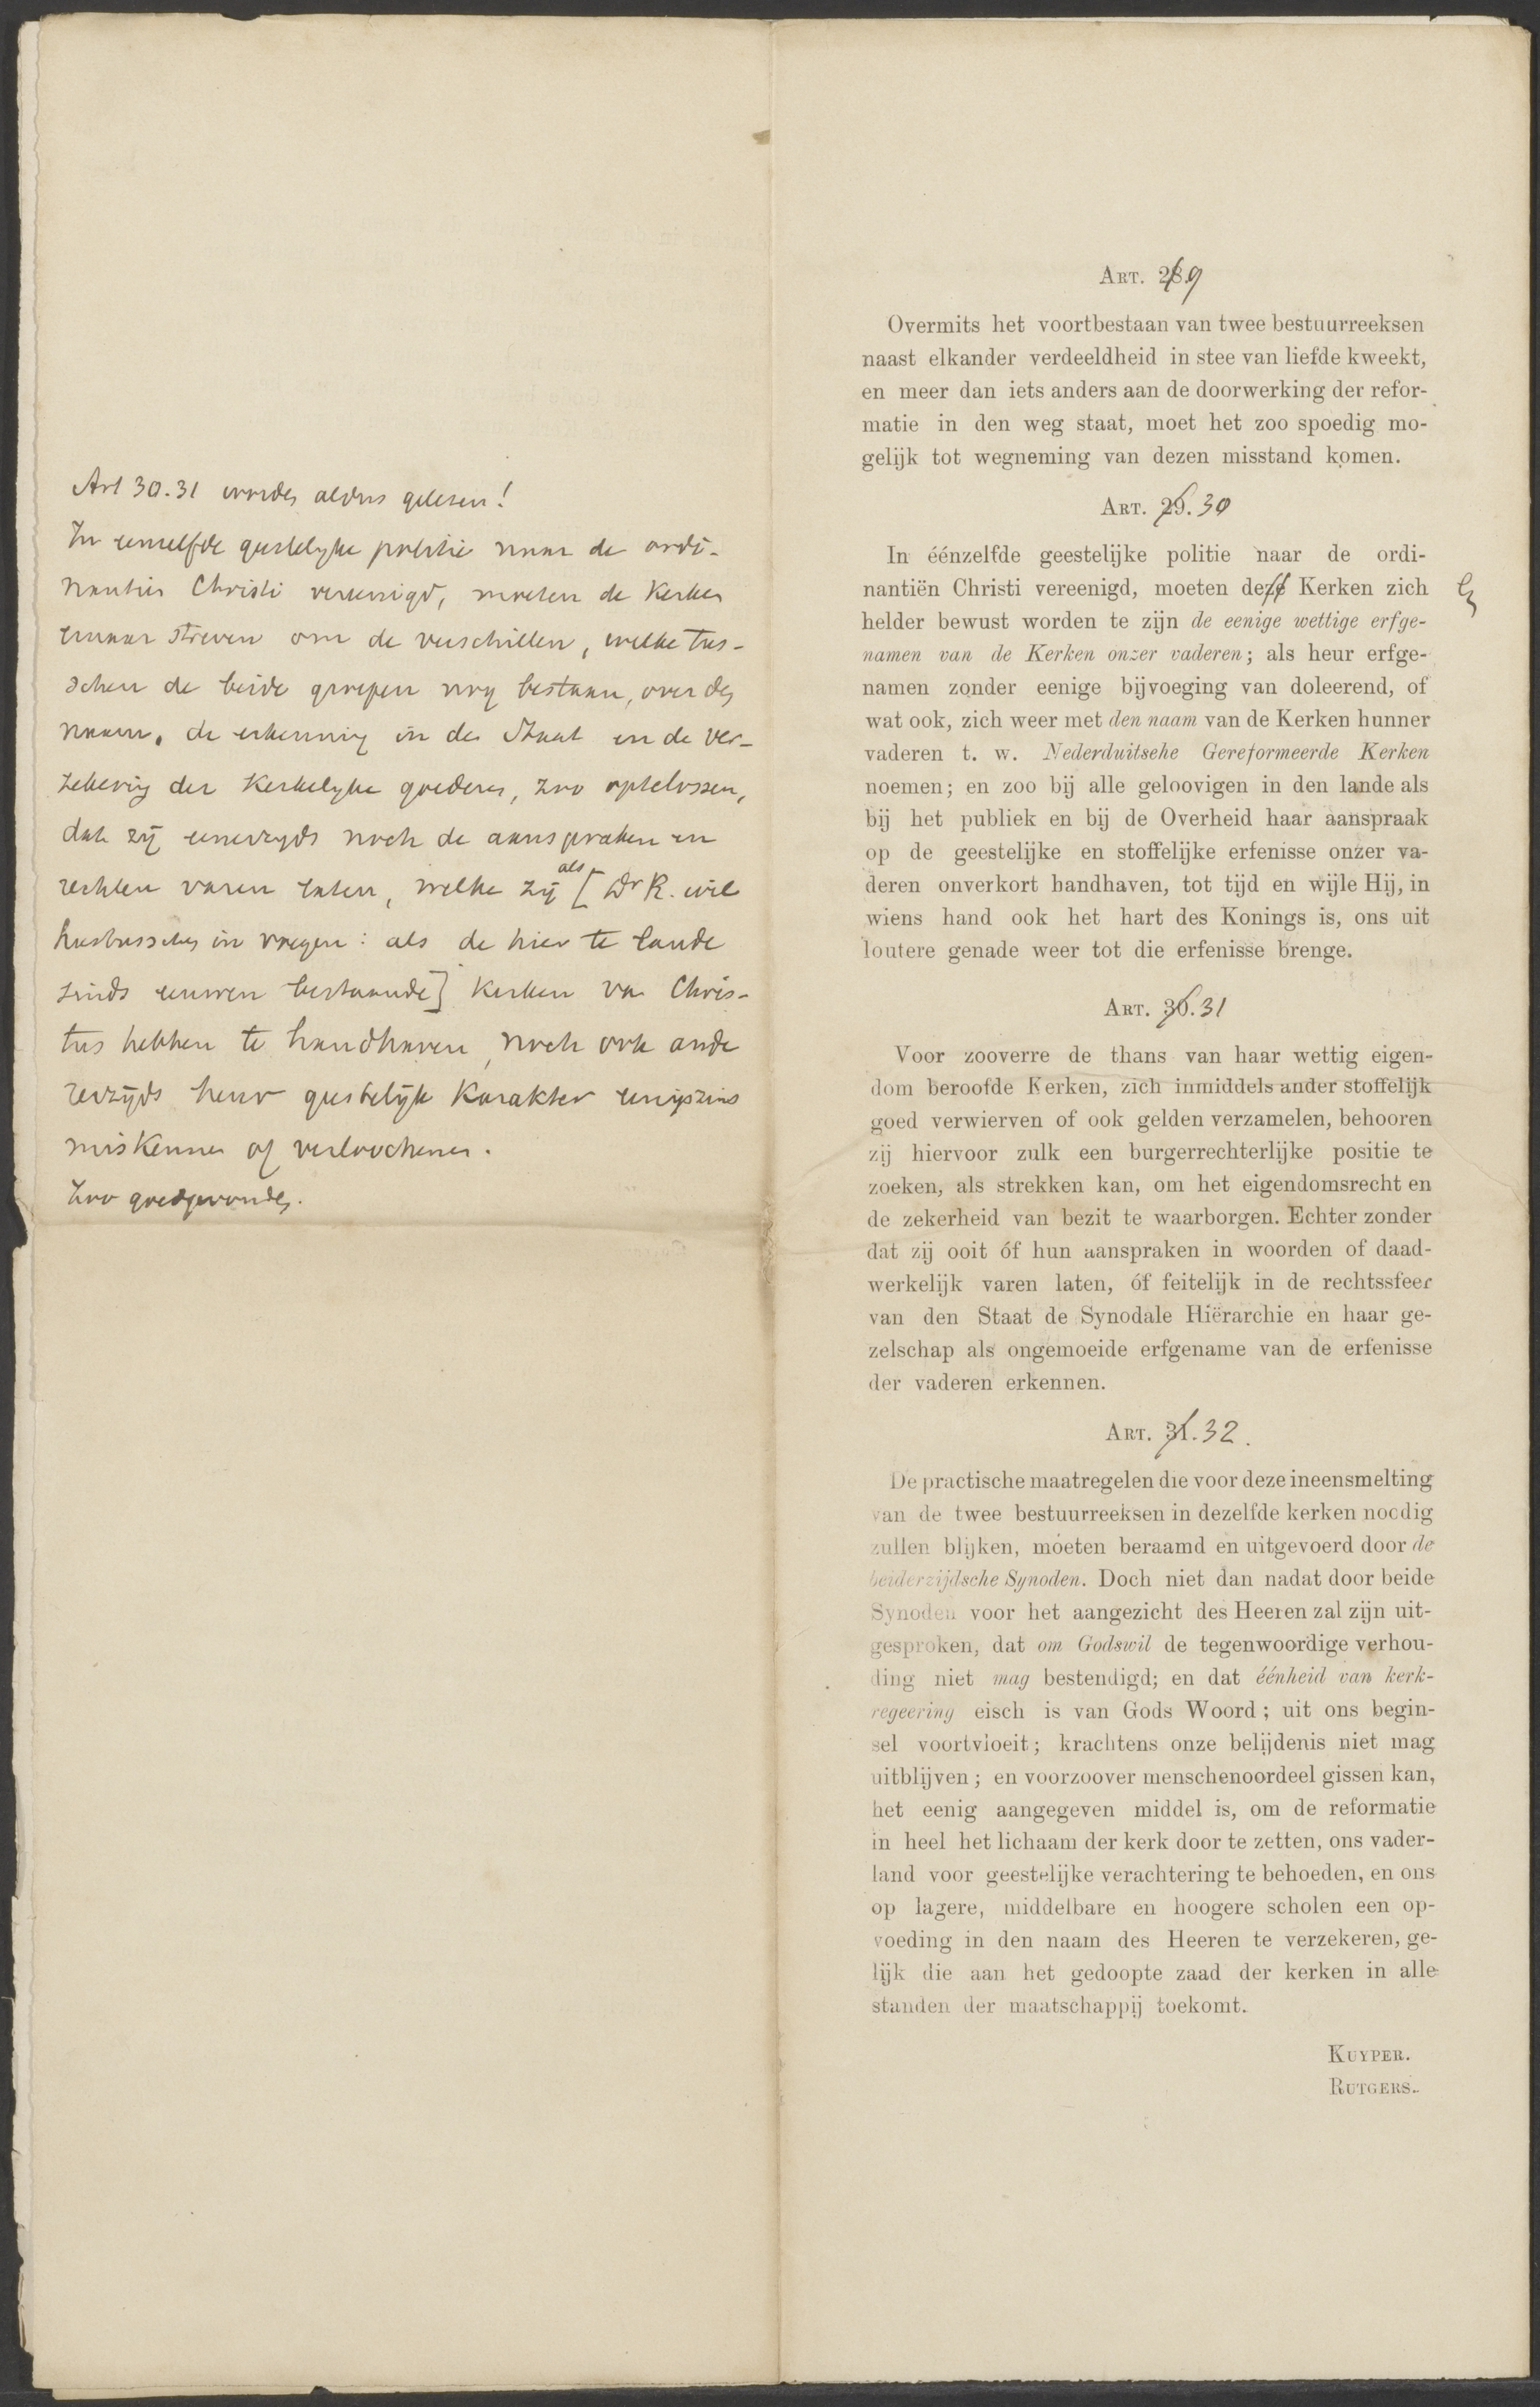 Art 30.31 worden aldus gelezen!
In eenzelfde geestelyke politie naar de ordi-
nantien Christi vereenigd, moeten de Kerken
ernaar streven om de verschillen, welke tus-
schen de beide groepen nog bestaan, over den
naam, de erkenning in den Staat en de ver-
zekering der Kerkelyke goederen, zoo optelossen,
dat zij eenerzyds noch de aanspraken en
rechten varen laten, welke zij als [Dr R. wil
hiertusschen in voegen: als de hier te lande
sinds eeuwen bestaande] Kerken van Chris-
tus hebben te handhaven, noch ook ande
rerzijds heur geestelijk Karakter eenigszins
miskennen of verloochenen.
Zoo goedgevonden.
ART. 28.9
Overmits het voortbestaan van twee bestuurreeksen
naast elkander verdeeldheid in stee van liefde kweekt,
en meer dan iets anders aan de doorwerking der refor-
matie in den weg staat, moet het zoo spoedig mo-
gelijk tot wegneming van dezen misstand komen.
ART. 29. 30
In éénzelfde geestelijke politie naar de ordi-
nantiën Christi vereenigd, moeten deze Kerken zich
helder bewust worden te zijn de eenige wettige erfge-
namen van de Kerken onzer vaderen; als heur erfge-
namen zonder eenige bijvoeging van doleerend, of
wat ook, zich weer met den naam van de Kerken hunner
vaderen t. w. Nederduitsche Gereformeerde Kerken
noemen; en zoo bij alle geloovigen in den lande als
bij het publiek en bij de Overheid haar aanspraak
op de geestelijke en stoffelijke erfenisse onzer va-
deren onverkort handhaven, tot tijd en wijle Hij, in
wiens hand ook het hart des Konings is, ons uit
loutere genade weer tot die erfenisse brenge.
ART. 30. 31
Voor zooverre de thans van haar wettig eigen-
dom beroofde Kerken, zich inmiddels ander stoffelijk
goed verwierven of ook gelden verzamelen, behooren
zij hiervoor zulk een burgerrechterlijke positie te
zoeken, als strekken kan, om het eigendomsrecht en
de zekerheid van bezit te waarborgen. Echter zonder
dat zij ooit óf hun aanspraken in woorden of daad-
werkelijk varen laten, óf feitelijk in de rechtssfeer
van den Staat de Synodale Hiërarchie en haar ge-
zelschap als ongemoeide erfgename van de erfenisse
der vaderen erkennen.
ART. 31. 32.
De practische maatregelen die voor deze ineensmelting
van de twee bestuurreeksen in dezelfde kerken noodig
zullen blijken, moeten beraamd en uitgevoerd door de
beiderzijdsche Synoden. Doch niet dan nadat door beide
Synoden voor het aangezicht des Heeren zal zijn uit-
gesproken, dat om Godswil de tegenwoordige verhou-
ding niet mag bestendigd; en dat éénheid van kerk-
regeering eisch is van Gods Woord; uit ons begin-
sel voortvloeit; krachtens onze belijdenis niet mag
uitblijven; en voorzoover menschenoordeel gissen kan,
het eenig aangegeven middel is, om de reformatie
in heel het lichaam der kerk door te zetten, ons vader-
land voor geestelijke verachtering te behoeden, en ons
op lagere, middelbare en hoogere scholen een op-
voeding in den naam des Heeren te verzekeren, ge-
lijk die aan het gedoopte zaad der kerken in alle
standen der maatschappij toekomt.
KUYPER.
RUTGERS.